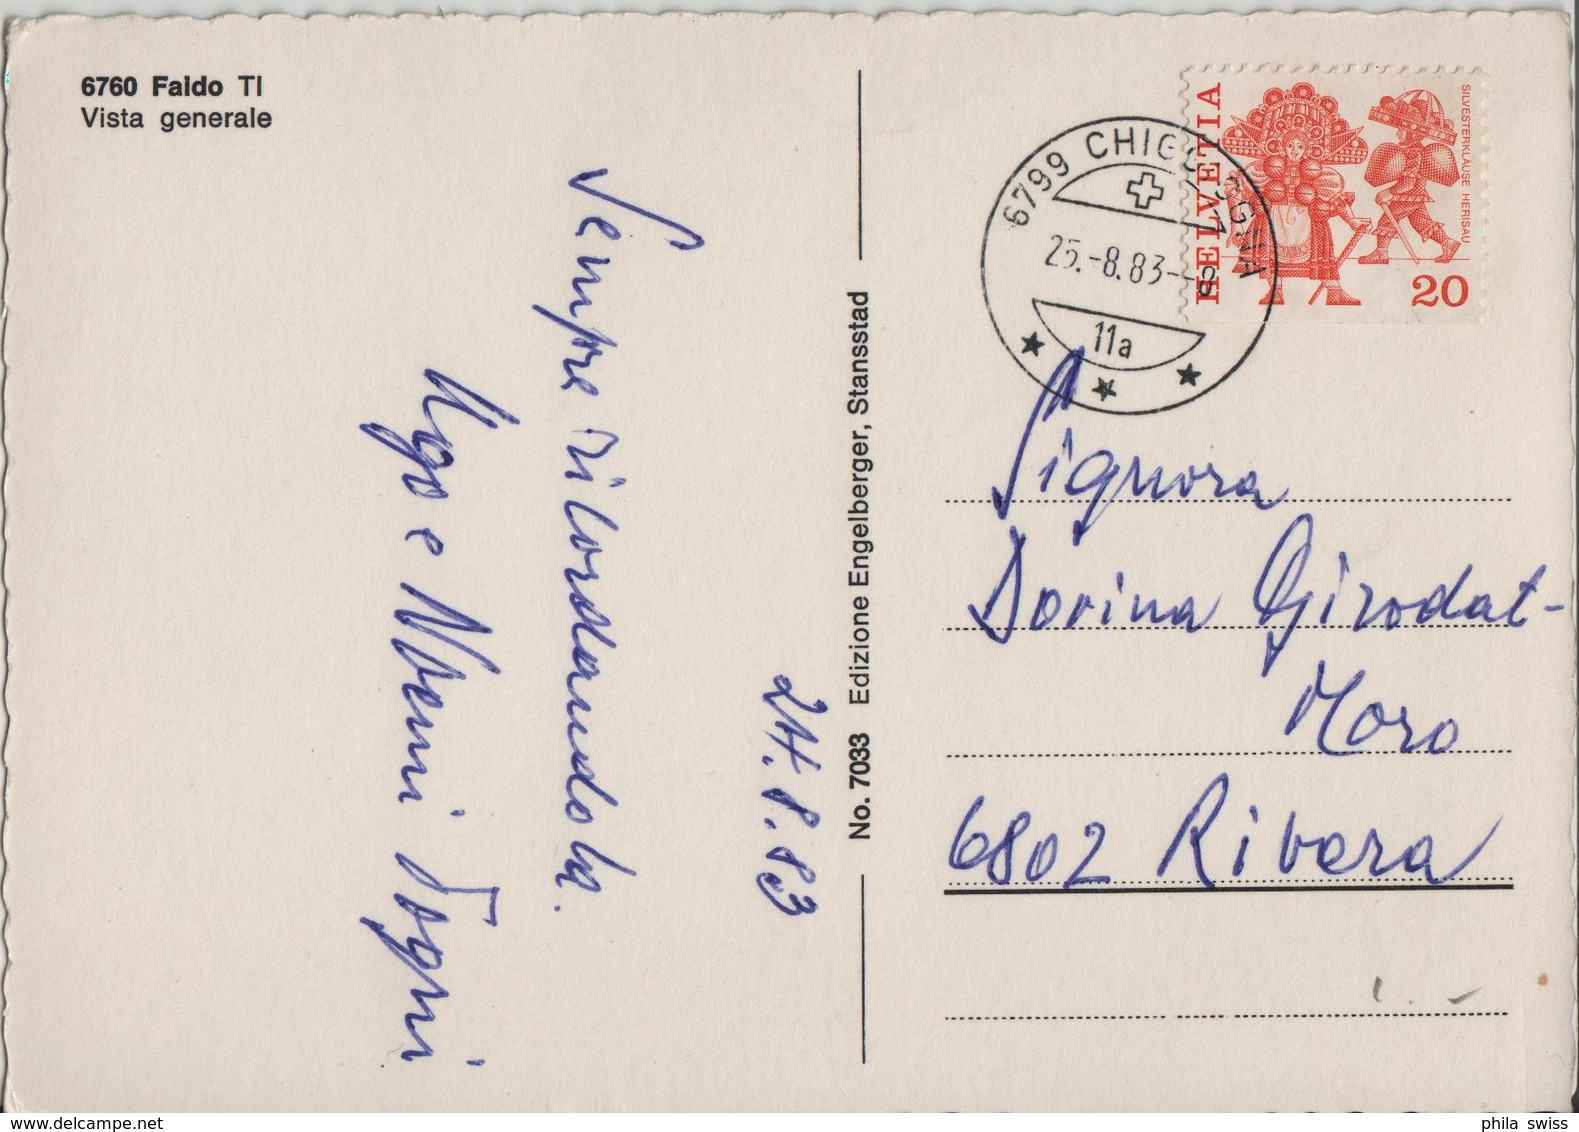 6760 Faido TI
Vista generale
24.8.83
Sempre ricordandola.
Ugo e Noemi Togni
No. 7033 Edizione Engelberger, Stansstad
HELVETIA
SILVESTERKLÄUSE HERISAU
20
6799 CHIGGIOGNA
25.-8.83--8
11a
Signora
Dorina Girodat-
Moro
6802 Rivera
phila swiss